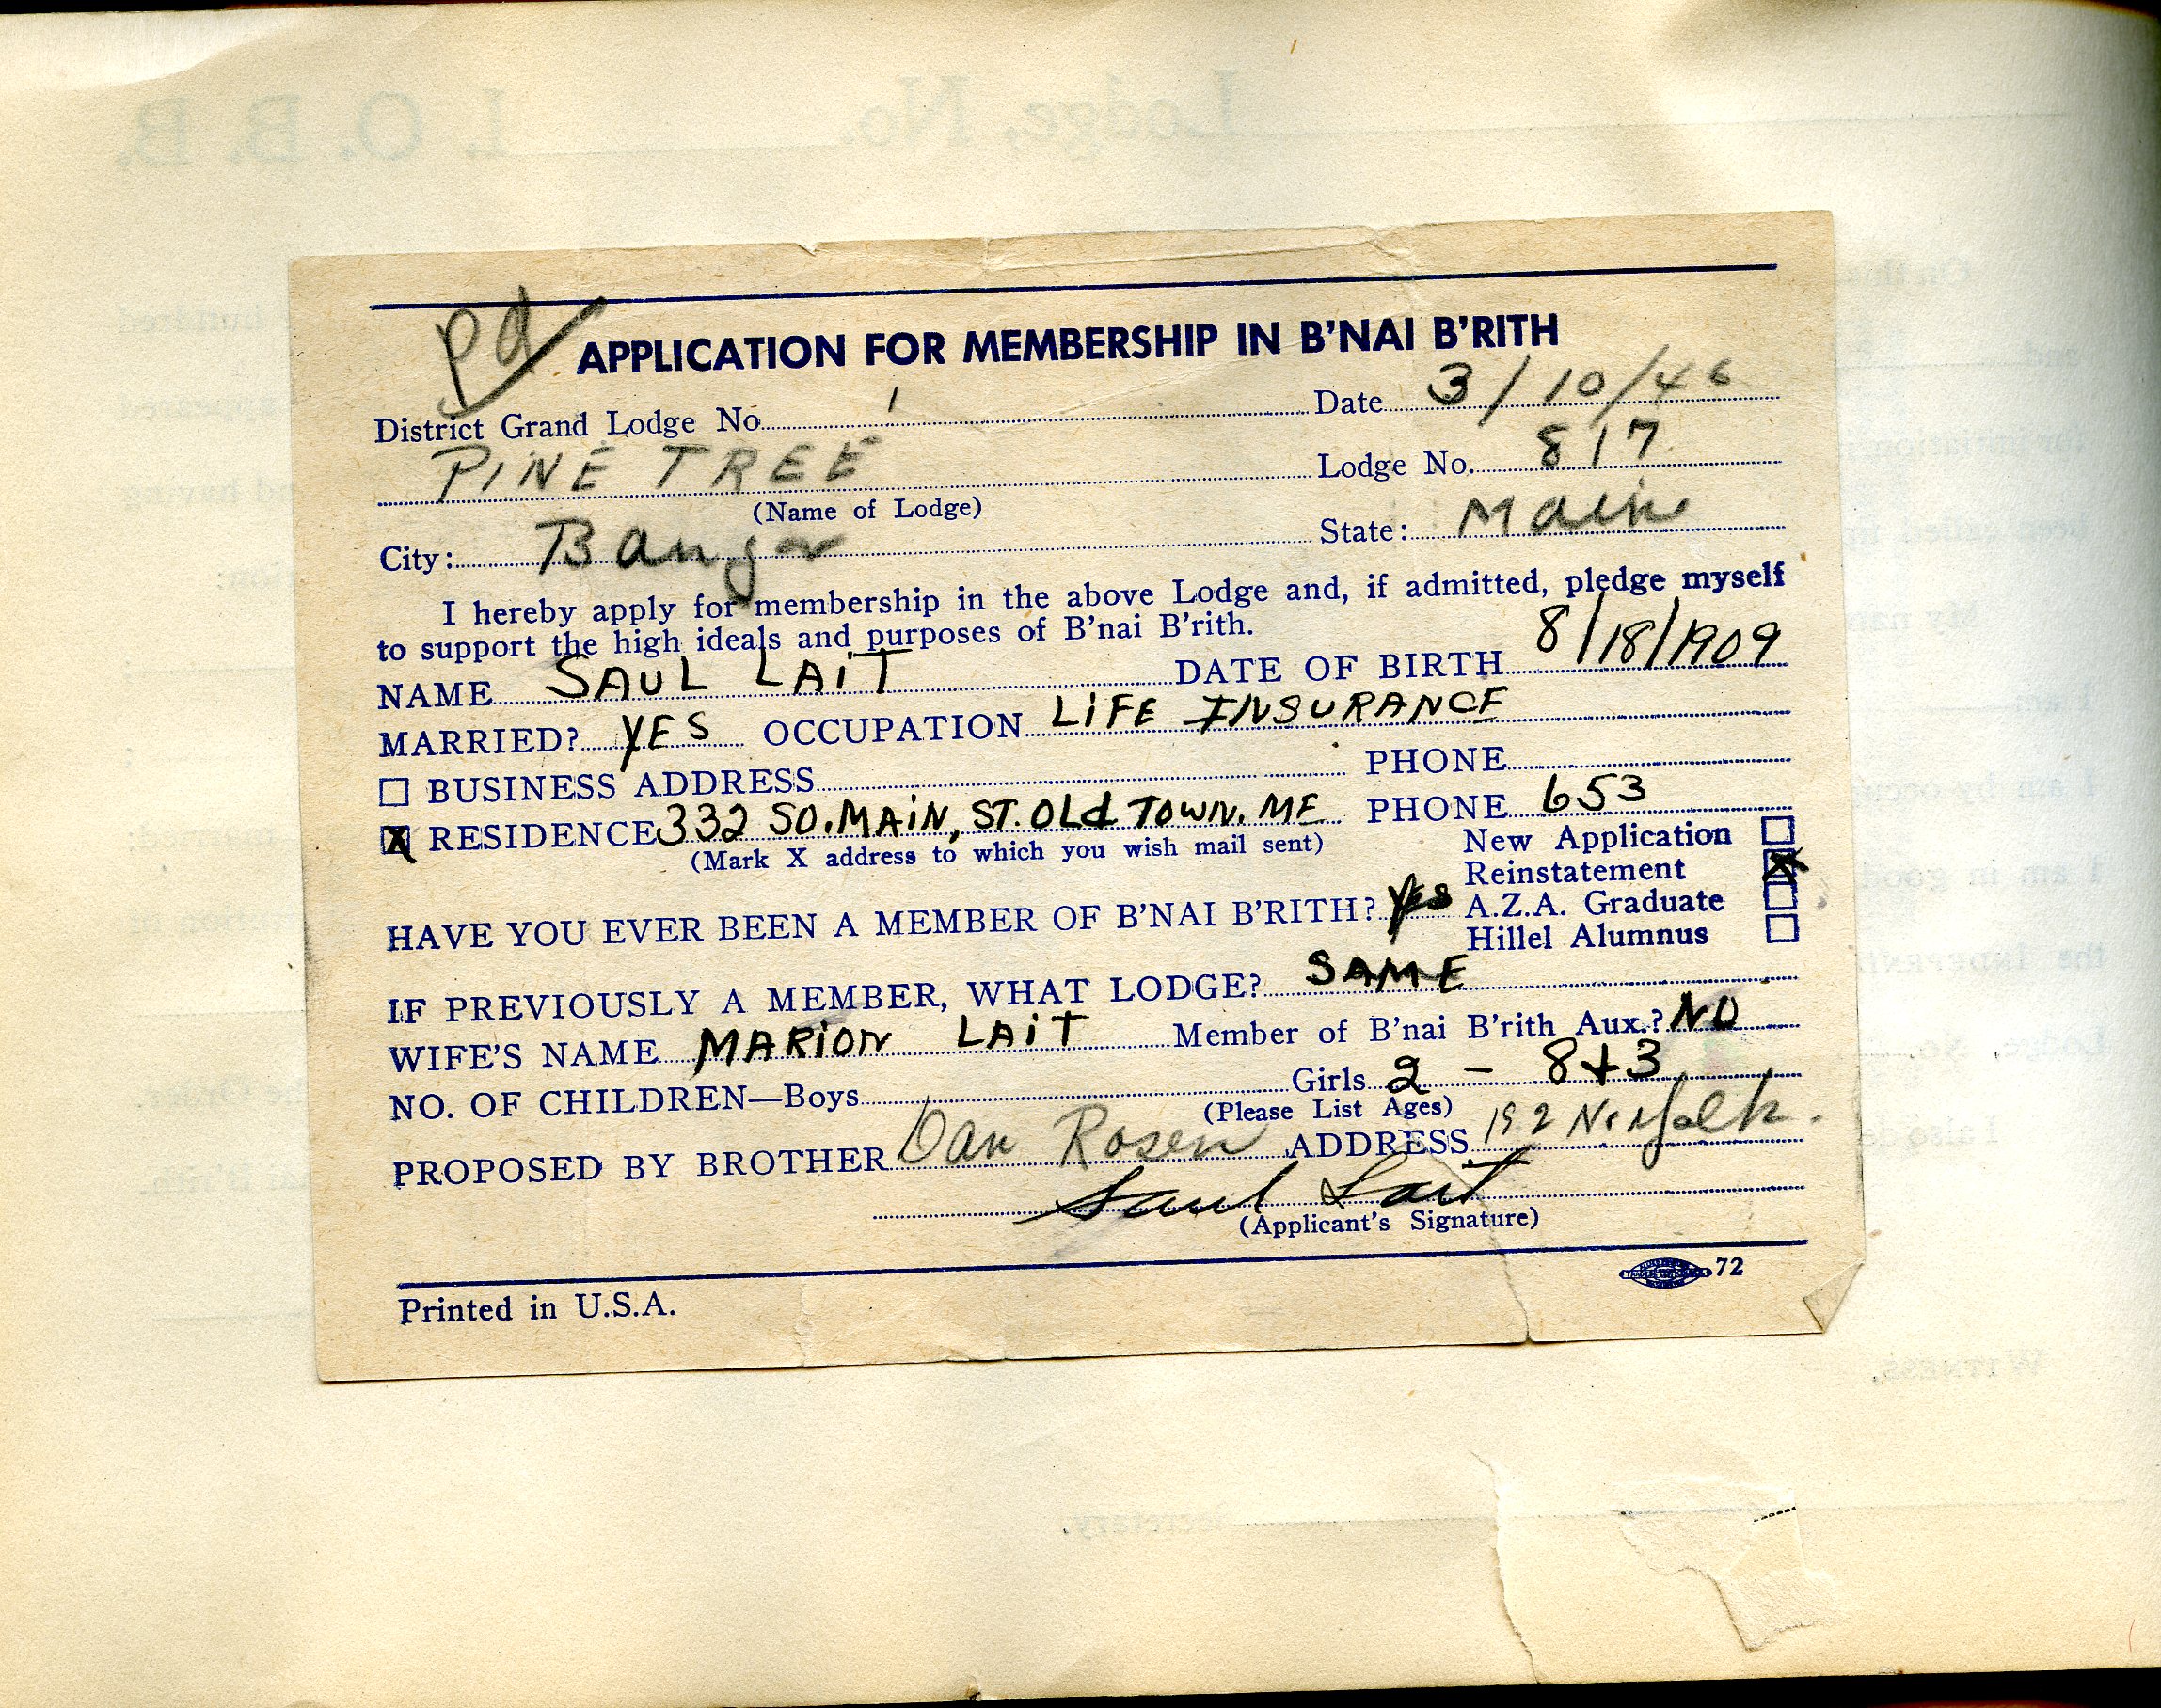 pd
APPLICATION FOR MEMBERSHIP IN B'NAI B'RITH
District Grand Lodge No. 1 Date 3/10/46
PINE TREE Lodge No. 817
(Name of Lodge)
City: Bangor State: Maine
I hereby apply for membership in the above Lodge and, if admitted, pledge myself
to support the high ideals and purposes of B'nai B'rith.
NAME SAUL LAIT DATE OF BIRTH 8/18/1909
MARRIED? YES OCCUPATION LIFE INSURANCE
BUSINESS ADDRESS PHONE
X RESIDENCE 332 SO. MAIN, ST. OLd TOWN. ME PHONE 653
(Mark X address to which you wish mail sent) New Application
Reinstatement X
HAVE YOU EVER BEEN A MEMBER OF B'NAI B'RITH? Yes A.Z.A. Graduate
Hillel Alumnus
IF PREVIOUSLY A MEMBER, WHAT LODGE? SAME
WIFE'S NAME MARION LAIT Member of B'nai B'rith Aux.? NO
NO. OF CHILDREN—Boys Girls 2 - 8+3
(Please List Ages)
PROPOSED BY BROTHER Dan Rosen ADDRESS 192 Norfolk.
Saul Lait
(Applicant's Signature)
72
Printed in U.S.A.